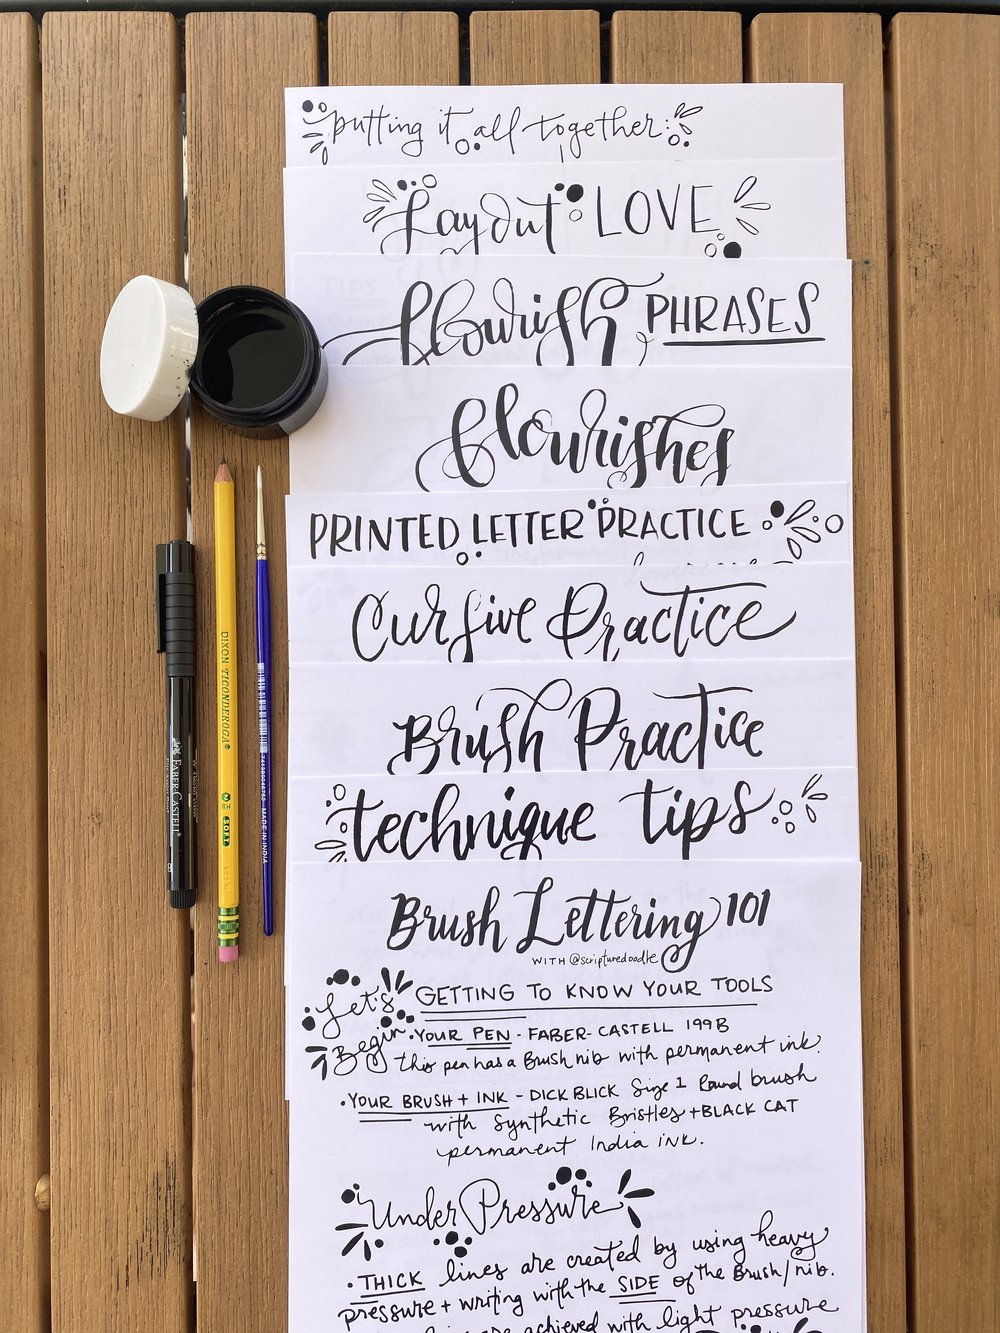 putting it all together:
Layout LOVE
flourish PHRASES
flourishes
PRINTED LETTER PRACTICE
lowercase
Cursive Practice
Brush Practice
technique tips
Brush Lettering 101
WITH @scripturedoodle
Let's Begin
GETTING TO KNOW YOUR TOOLS
• YOUR PEN - FABER-CASTELL 199B
this pen has a Brush nib with permanent ink.
• YOUR BRUSH + INK - DICK BLICK Size 1 Round brush
with Synthetic Bristles + BLACK CAT
permanent India ink.
Under Pressure
• THICK lines are created by using heavy
pressure + writing with the SIDE of the Brush/nib.
are achieved with light pressure
DIXON TICONDEROGA®
2 HB SOFT
FABER-CASTELL
B
MADE IN INDIA